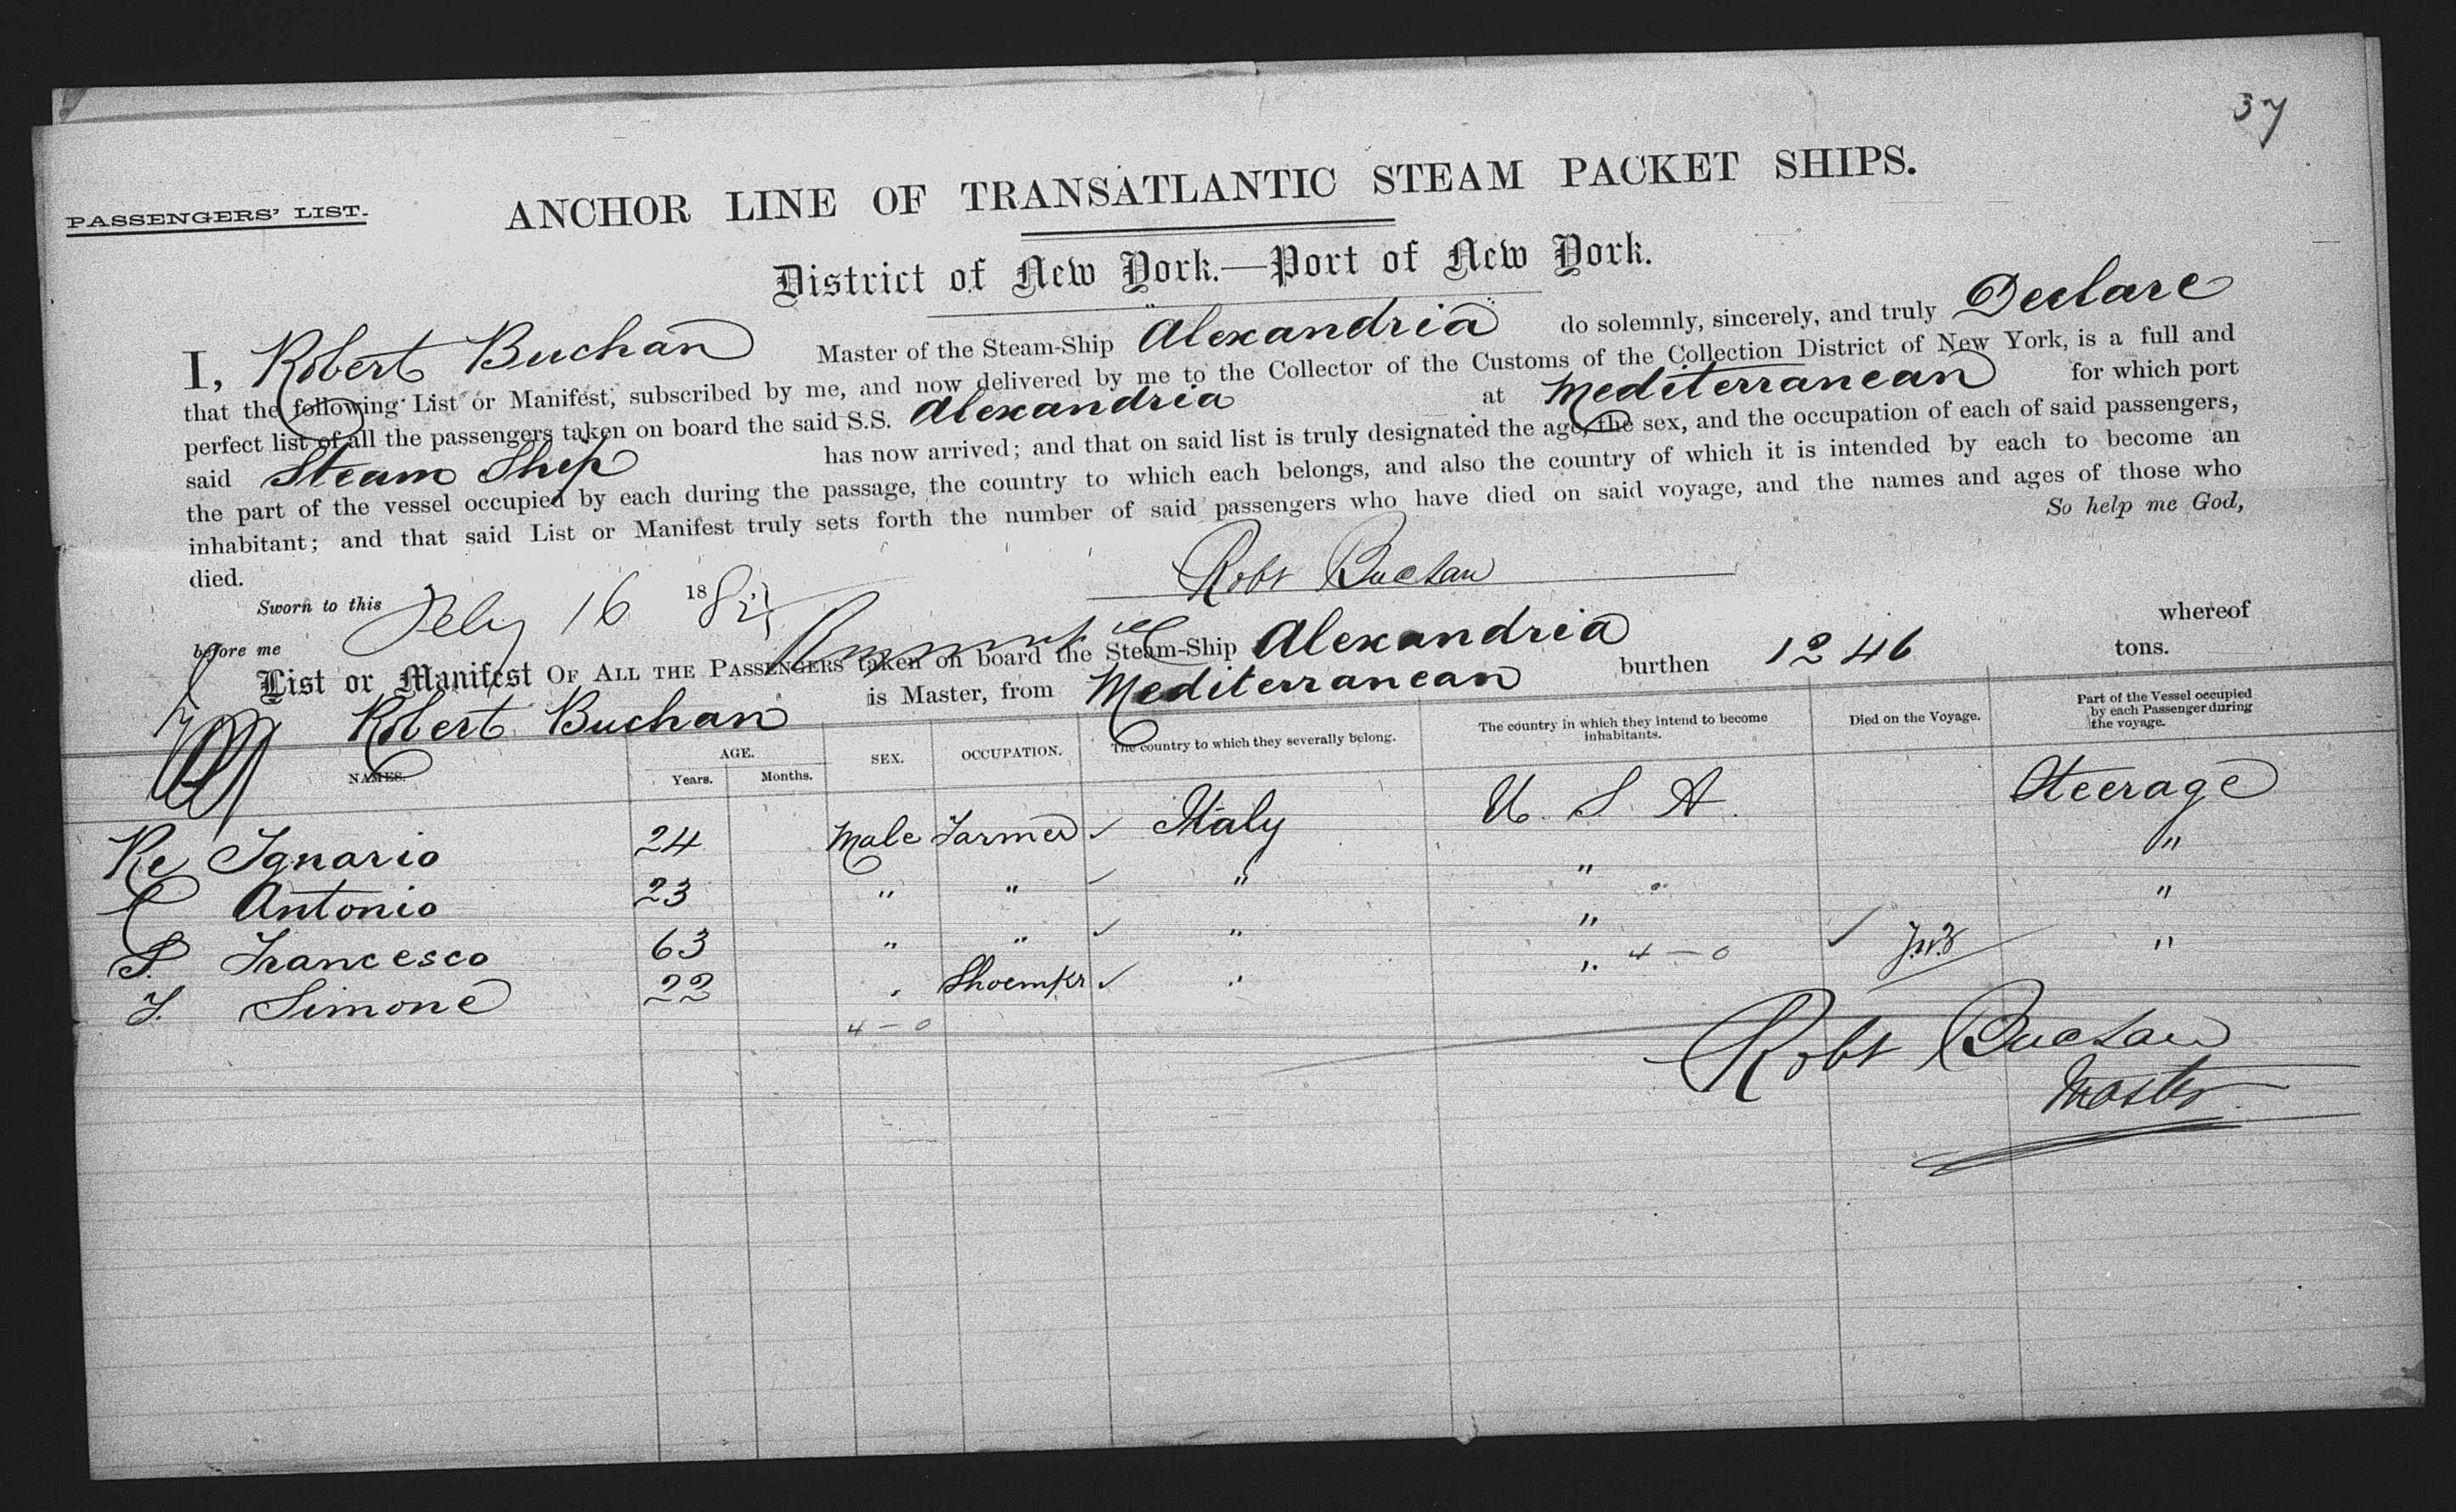 37
PASSENGERS' LIST.
ANCHOR LINE OF TRANSATLANTIC STEAM PACKET SHIPS.
District of New York.—Port of New York.
I, Robert Buchan Master of the Steam-Ship Alexandria do solemnly, sincerely, and truly Declare
that the following List or Manifest, subscribed by me, and now delivered by me to the Collector of the Customs of the Collection District of New York, is a full and
perfect list of all the passengers taken on board the said S.S. Alexandria at Mediterranean for which port
said Steam Ship has now arrived; and that on said list is truly designated the age, the sex, and the occupation of each of said passengers,
the part of the vessel occupied by each during the passage, the country to which each belongs, and also the country of which it is intended by each to become an
inhabitant; and that said List or Manifest truly sets forth the number of said passengers who have died on said voyage, and the names and ages of those who
died. So help me God,
Sworn to this Feby 16 18 Robt Buchan
before me
List or Manifest OF ALL THE PASSENGERS taken on board the Steam-Ship Alexandria burthen 1246 tons. whereof
Robert Buchan is Master, from Mediterranean
NAMES. AGE. Years. Months. SEX. OCCUPATION. The country to which they severally belong. The country in which they intend to become inhabitants. Died on the Voyage. Part of the Vessel occupied by each Passenger during the voyage.
Re Ignazio 24 Male Farmer ✓ Italy U. S. A. Steerage
Antonio 23 " " ✓ " " "
Francesco 63 " " ✓ " " "
Simone 22 " Shoemkr ✓ " " "
4 – 0
4 – 0 ✓
Robt Buchan
Master